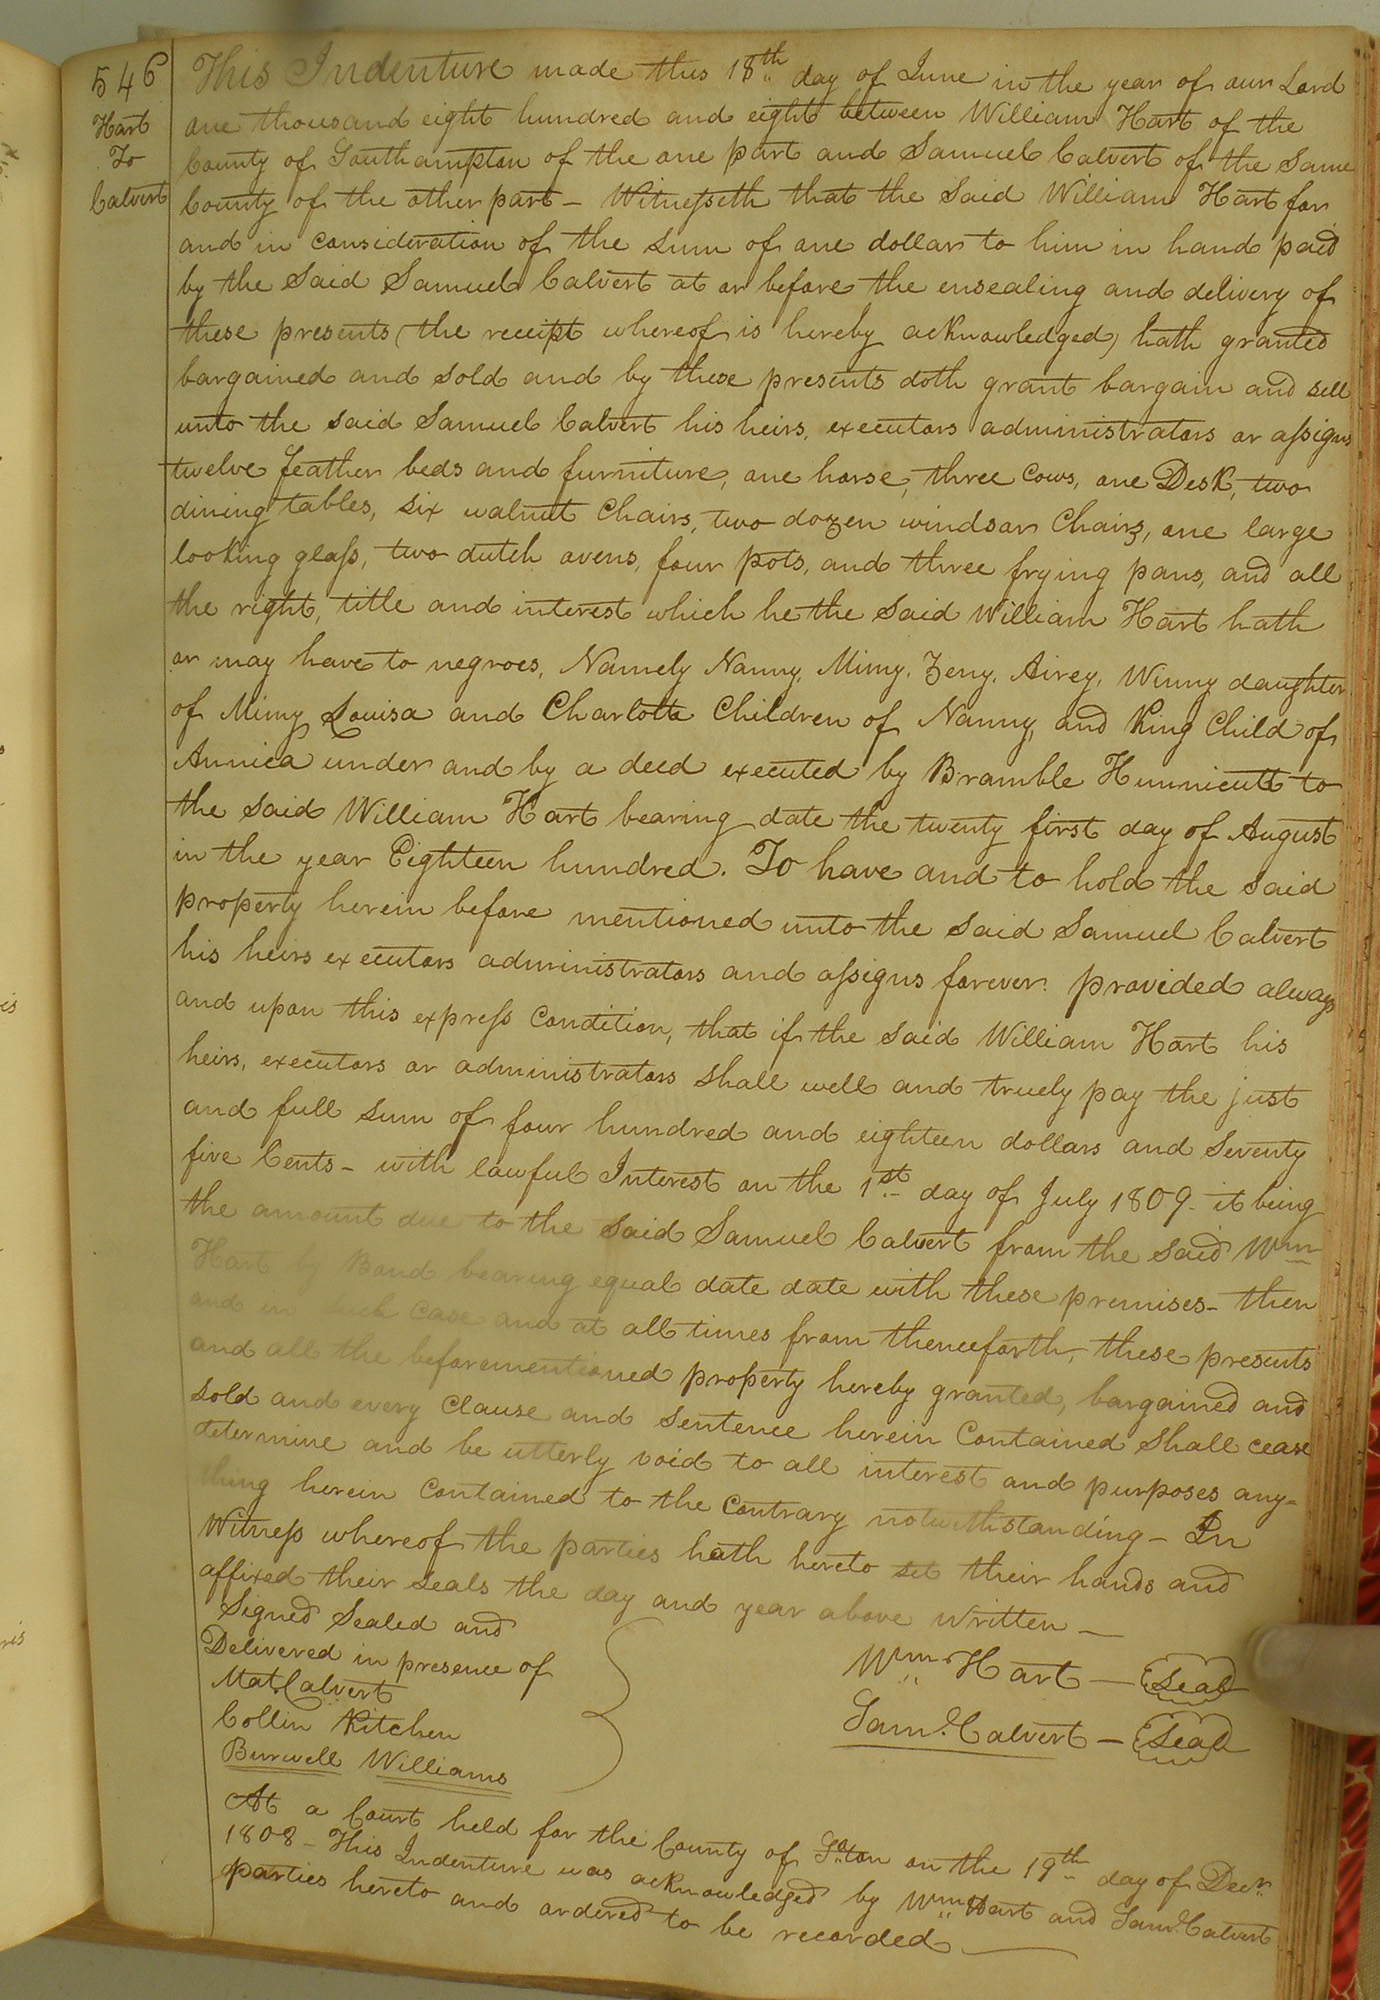 546
Hart
To
Calvert
This Indenture made this 18th day of June in the year of our Lord
one thousand eight hundred and eight between William Hart of the
County of Southampton of the one part and Samuel Calvert of the Same
County of the other part – Witnesseth that the said William Hart for
and in consideration of the sum of one dollar to him in hand paid
by the said Samuel Calvert at or before the ensealing and delivery of
these presents (the receipt whereof is hereby acknowledged) hath granted
bargained and sold and by these presents doth grant bargain and sell
unto the said Samuel Calvert his heirs, executors administrators or assigns
twelve feather beds and furniture, one horse, three cows, one Desk, two
dining tables, six walnut Chairs, two dozen windsor Chairs, one large
looking glass, two dutch ovens, four pots, and three frying pans, and all
the right, title and interest which he the said William Hart hath
or may have to negroes, Namely Nanny, Mimy, Zeny, Airey, Winny daughter
of Mimy Louisa and Charlotte Children of Nanny, and King Child of
Annica under and by a deed executed by Bramble Hunnicutt to
the said William Hart bearing date the twenty first day of August
in the year Eighteen hundred. To have and to hold the said
property herein before mentioned unto the said Samuel Calvert
his heirs executors administrators and assigns forever. provided always
and upon this express Condition, that if the said William Hart his
heirs, executors or administrators shall well and truely pay the just
and full sum of four hundred and eighteen dollars and Seventy
five Cents – with lawful Interest on the 1st day of July 1809 – it being
the amount due to the said Samuel Calvert from the said Wm
Hart by Bond bearing equal date date with these premises – then
and in such Case and at all times from thenceforth, these presents
and all the beforementioned property hereby granted, bargained and
sold and every Clause and Sentence herein Contained Shall cease
determine and be utterly void to all interest and purposes any-
thing herein Contained to the Contrary notwithstanding – In
Witness whereof the parties hath hereto set their hands and
affixed their seals the day and year above written —
Signed Sealed and
Delivered in presence of
Mat. Calvert
Collin Kitchen
Burwell Williams
Wm Hart — Seal
Saml. Calvert — Seal
At a Court held for the County of So.ton on the 19th day of Decr.
1808 – This Indenture was acknowledged by Wm Hart and Saml. Calvert
parties hereto and ordered to be recorded —